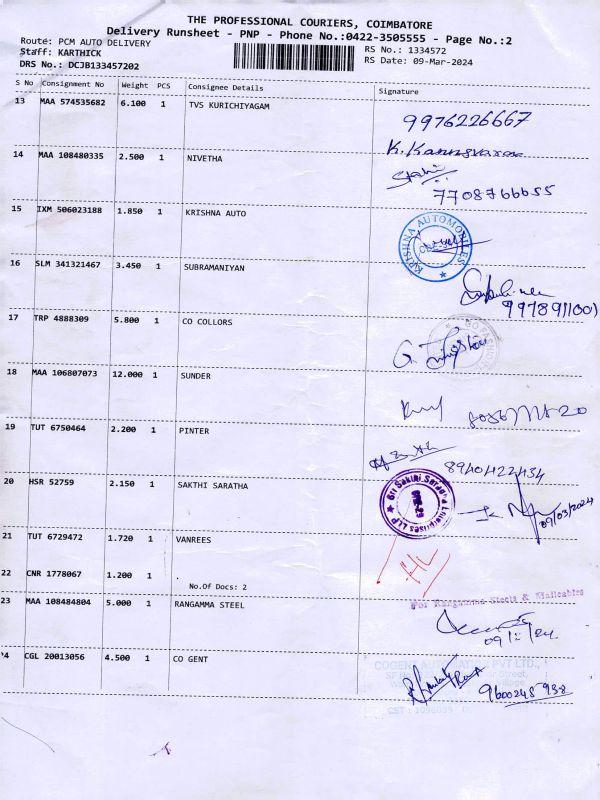 THE PROFESSIONAL COURIERS, COIMBATORE
Delivery Runsheet - PNP - Phone No.:0422-3505555 - Page No.:2
Route: PCM AUTO DELIVERY
RS No.: 1334572
Staff: KARTHICK
RS Date: 09-Mar-2024
DRS No.: DCJB133457202
S No Consignment No Weight PCS Consignee Details Signature
13 MAA 574535682 6.100 1 TVS KURICHIYAGAM
9976226667
14 MAA 108480335 2.500 1 NIVETHA
7708766655
15 IXM 506023188 1.850 1 KRISHNA AUTO
KRISHNA AUTOMOBILES
16 SLM 341321467 3.450 1 SUBRAMANIYAN
17 TRP 4888309 5.800 1 CO COLLORS
18 MAA 106807073 12.000 1 SUNDER
19 TUT 6750464 2.200 1 PINTER
8940422434
20 HSR 52759 2.150 1 SAKTHI SARATHA
09/03/2024
21 TUT 6729472 1.720 1 VANREES
22 CNR 1778067 1.200 1
No.Of Docs: 2
23 MAA 108484804 5.000 1 RANGAMMA STEEL
For Rangamma Steels & Malleables
24 CGL 20013056 4.500 1 CO GENT
9600248 938